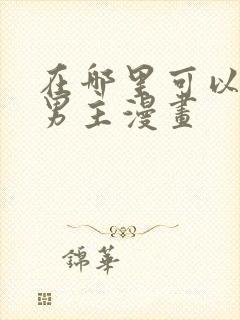 在哪里可以
男主漫畫
錦華